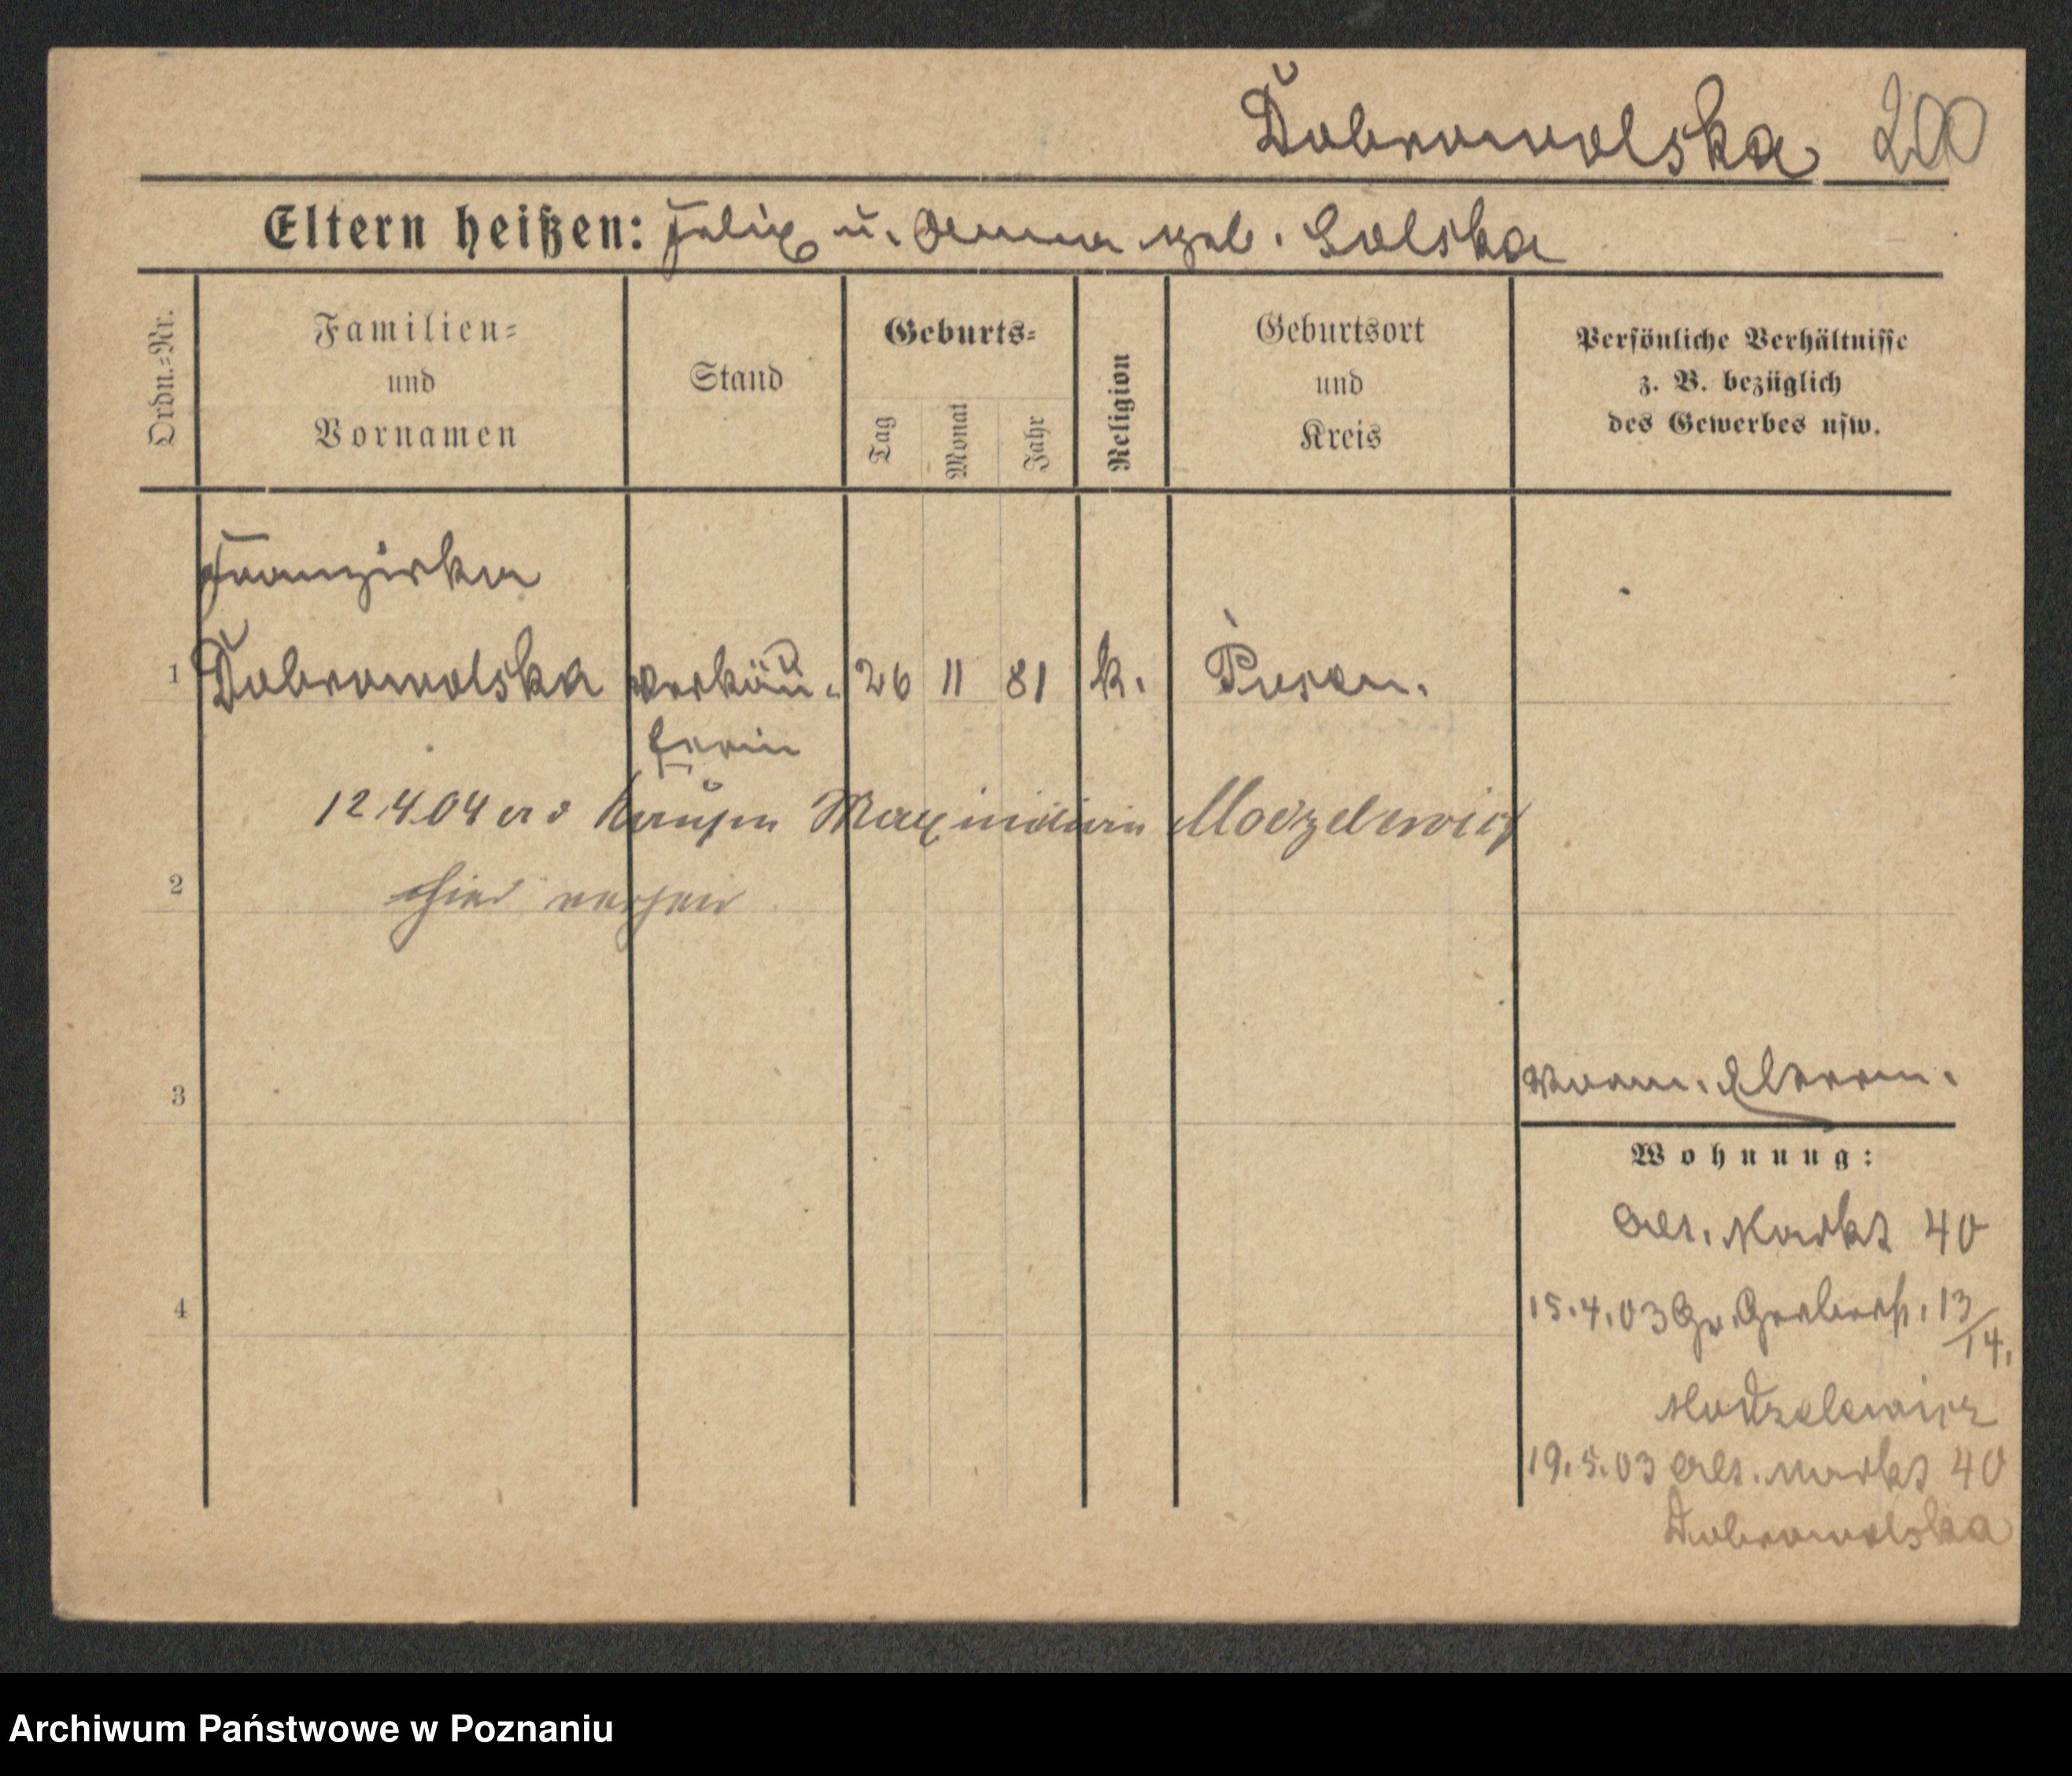 Dobrowolska 200
Eltern heißen: Felix u. Anna geb. Golska
Ordn.=Nr.
Familien=
und
Vornamen
Stand
Geburts=
Tag
Monat
Jahr
Religion
Geburtsort
und
Kreis
Persönliche Verhältnisse
z. B. bezüglich
des Gewerbes usw.
Franziska
1 Dobrowolska Verkäu- 26 11 81 k. Posen.
ferin
12.4.04 Kaufm Maximilian
2 hier
3
Wohnung:
Alt. Markt 40
4
15.4.03 Gr. Gerberst. 13/14.
Modzelewicz
19.5.03 Alt. Markt 40
Dobrowolska
Archiwum Państwowe w Poznaniu